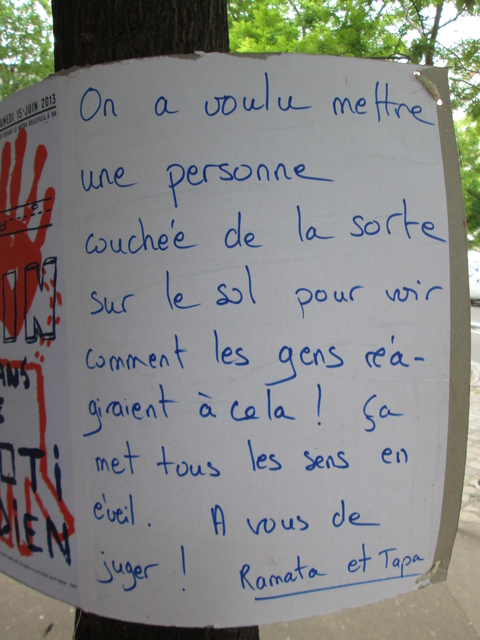 On a voulu mettre
une personne
couchée de la sorte
sur le sol pour voir
comment les gens réa-
giraient à cela ! ça
met tous les sens en
éveil. A vous de
juger !
Ramata et Tapa
SAMEDI 15 JUIN 2013
IN
ANS
OTI
DIEN